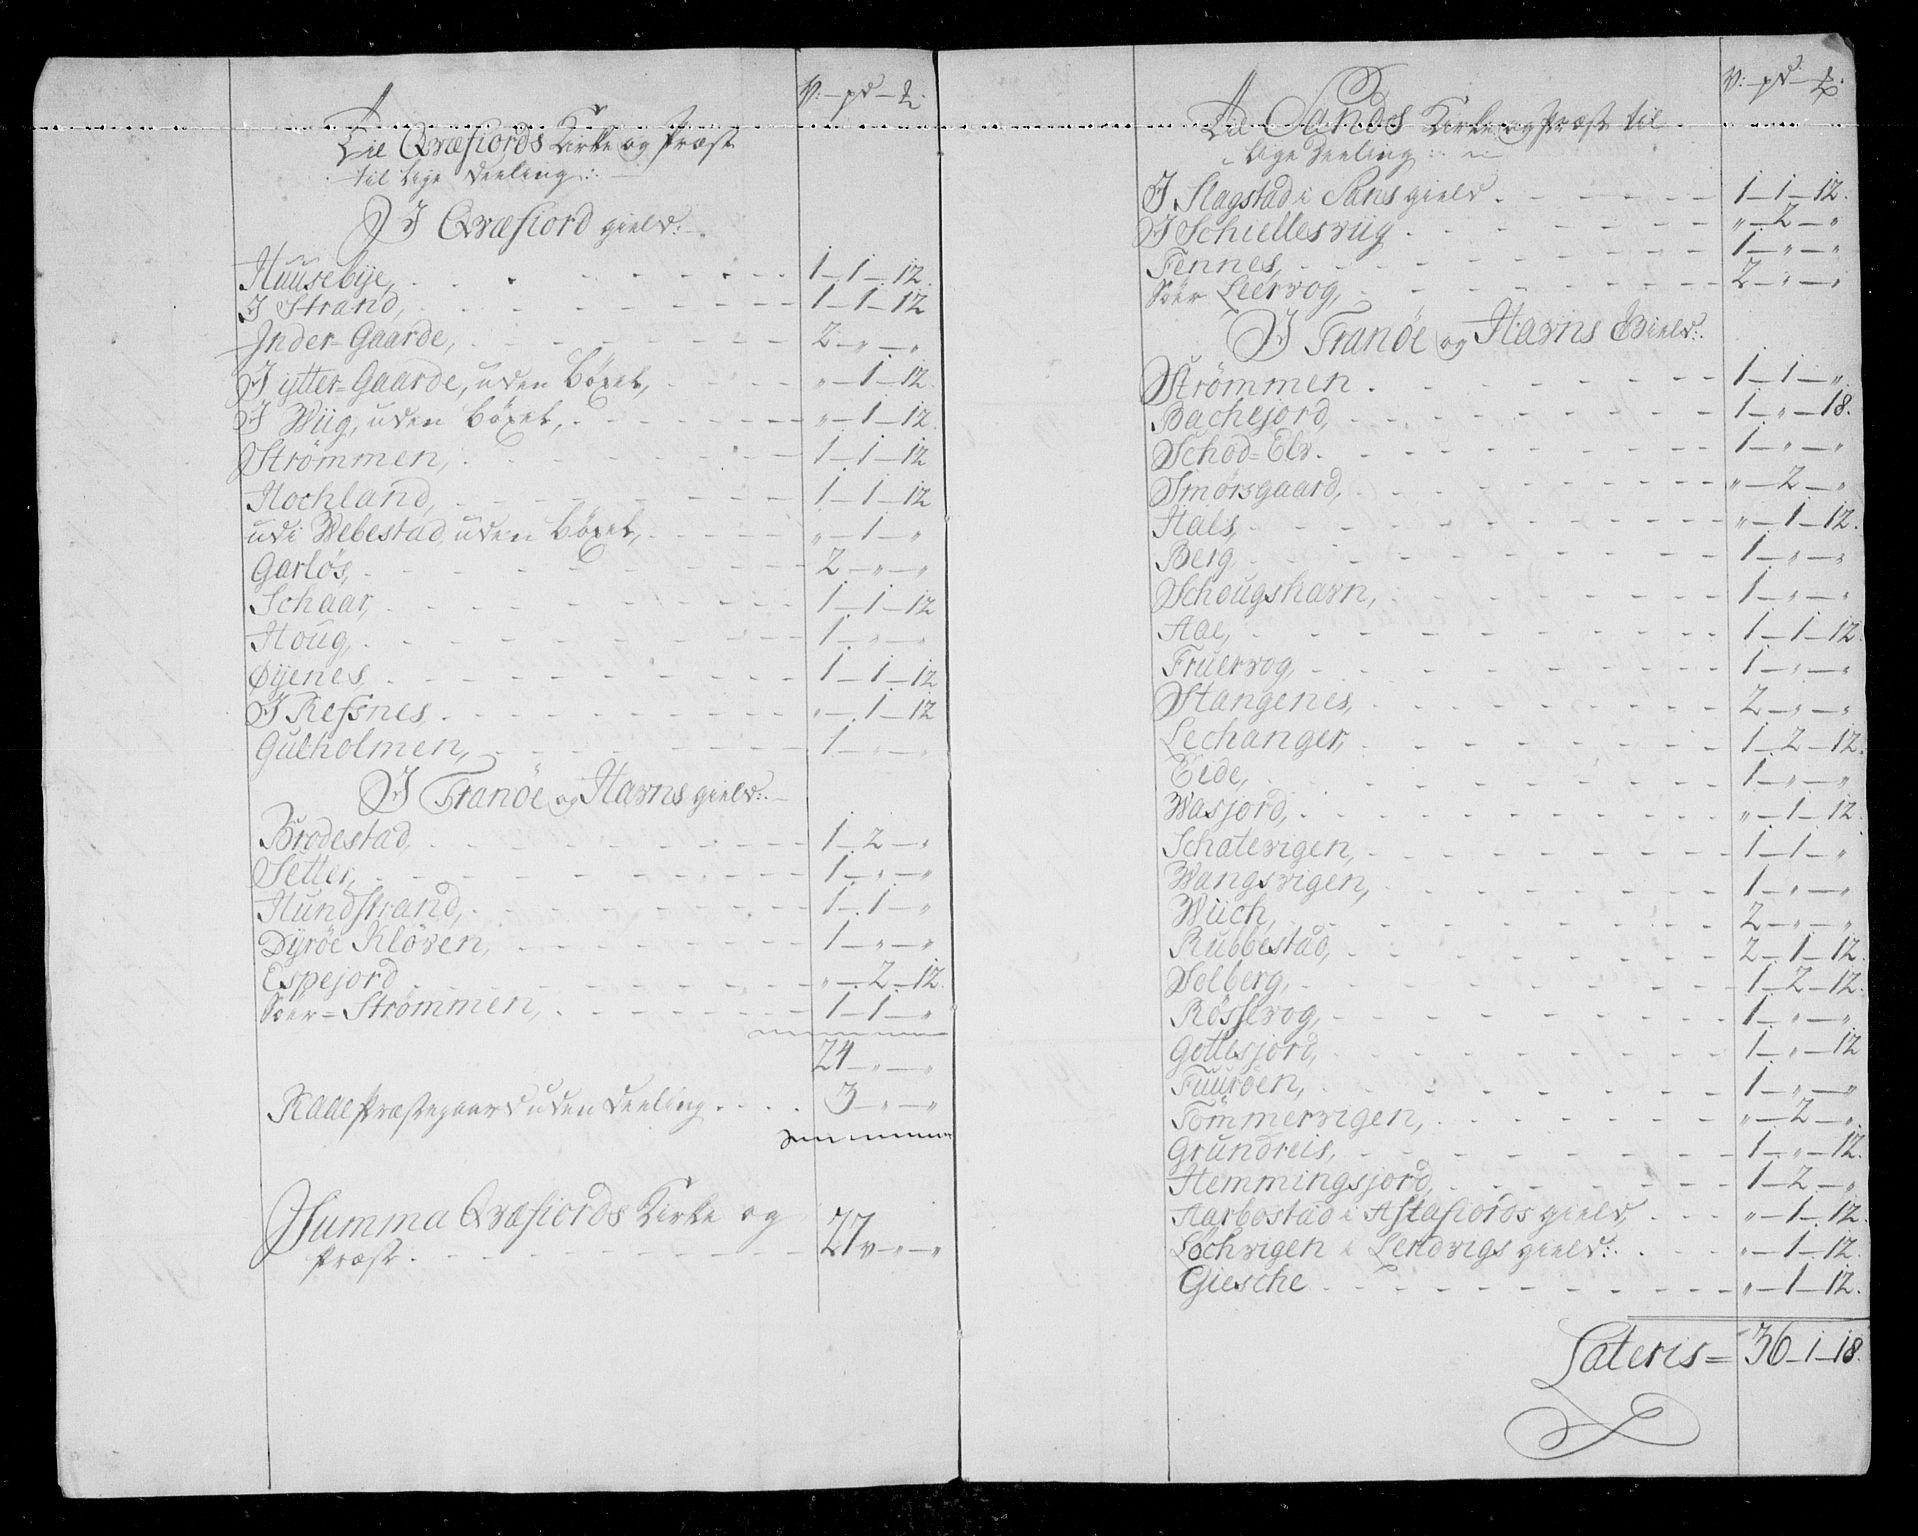 V: — pd — ℔:
Til Qvæfiords Kirke og Præst
til lige deeling:
I Qvæfiord gield:
Huusebye, 1 — 1 — 12.
I Strand, 1 — 1 — 12
Inder-Gaarde, 2 — „ — „
I ytter-Gaarde, uden böxel, „ — 1 — 12.
I Wiig, uden böxel, „ — 1 — 12.
Strömmen, 1 — 1 — 12
Hochland, 1 — 1 — 12
udi Webestad, uden böxel, „ — 1 — „
Garlös, 2 — „ — „
Schaar, 1 — 1 — 12
Houg, 1 — „ — „
Öyenes 1 — 1 — 12
I Refsnes „ — 1 — 12
Gulholmen, 1 — „ — „
I Tranöe og Havns gield:
Brodestad, 1 — 2 — „
Setter, 1 — „ — „
Hundstrand, 1 — 1 — „
Dyröe Klöven, 1 — „ — „
Espejord „ — 2 — 12.
Söer-Strömmen, 1 — 1 — „
24 — „ — „
Raae Præstegaard uden deeling 3 — „ — „
Summa Qvæfiords Kirke og
Præst 27 v „ — „
V: — pd — ℔:
Til Sands Kirke og Præst til
lige deeling:
I Slagstad i Sans gield 1 — 1 — 12.
I Schiellesviig „ — 2 — „
Fennes, 1 — „ — „
Söer Leervog, 2 — „ — „
I Tranöe og Havns Gield:
Strömmen 1 — 1 — „
Bachejord, 1 — „ — 18.
Schod-Elv 1 — „ — „
Smörsgaard, „ — 2 — „
Hals, „ — 1 — 12.
Berg, 1 — „ — „
Schougshavn, 1 — „ — „
Aae, 1 — 1 — 12.
Fruervog, 1 — „ — „
Stangenes, 2 — „ — „
Lechanger, 1 — 2 — 12.
Eide, 1 — „ — „
Wasjord, „ — 1 — 12.
Schatevigen, 1 — 1 — „
Wangsvigen, 1 — „ — „
Wiich, 2 — „ — „
Rubbestad, 2 — 1 — 12.
Solberg, 1 — 2 — 12.
Rössevog, 1 — „ — „
Gottesjord, 1 — „ — 12
Fuuröen, 1 — „ — „
Tömmervigen, „ — 2 — „
Grundreis, 1 — „ — 12.
Hemmingsjord, 1 — 2 — „
Aarbostad i Astafiords gield, „ — 1 — 12.
Löchvigen i Lendvigs gield: „ — 1 — 12.
Giesche „ — 1 — 12.
Lateris = 36 — 1 — 18.